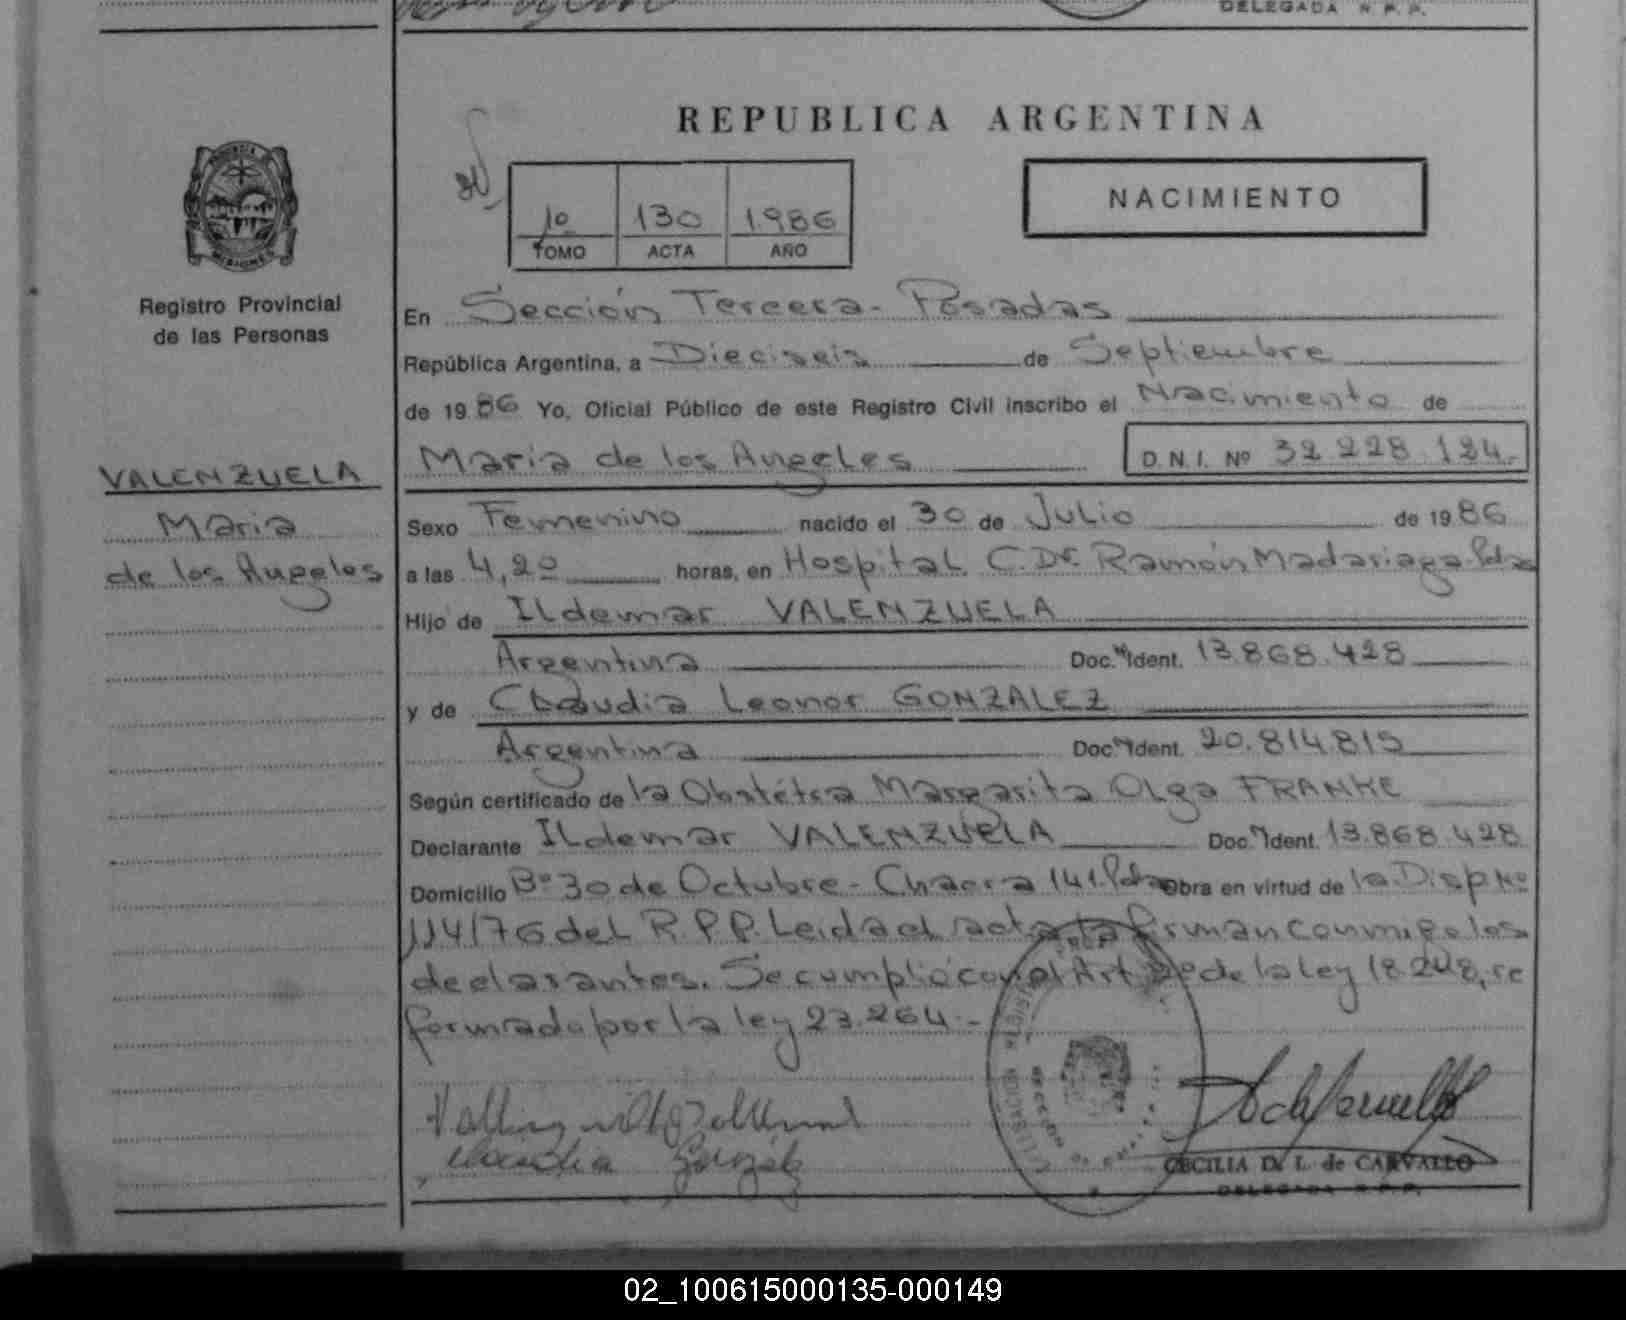 DELEGADA R.P.P.
REPUBLICA ARGENTINA
NACIMIENTO
1º 130 1.986
TOMO ACTA AÑO
Registro Provincial
de las Personas
VALENZUELA
Maria
de los Angeles
En Sección Tercera - Posadas
República Argentina, a Dieciseis de Septiembre
de 19 86 Yo, Oficial Público de este Registro Civil inscribo el Nacimiento de
Maria de los Angeles D.N.I. Nº 32.228.124.-
Sexo Femenino nacido el 30 de Julio de 19 86
a las 4,20 horas, en Hospital C. Dr. Ramón Madariaga. Pdas
Hijo de Ildemar VALENZUELA
Argentina Doc. Ident. 13.868.428
y de Claudia Leonor GONZALEZ
Argentina Doc. Ident. 20.814.815
Según certificado de la Obstétra Margarita Olga FRANKE
Declarante Ildemar VALENZUELA Doc. Ident. 13.868.428
Domicilio Bº 30 de Octubre - Chacra 141. Pdas Obra en virtud de la Disp Nº
114/76 del R.P.P. Leida el acta la firman conmigo los
declarantes. Se cumplió con el Art de la ley 18.248, re
formada por la ley 23.264.-
CECILIA D. L. de CARVALLO
DELEGADA R.P.P.
02_100615000135-000149